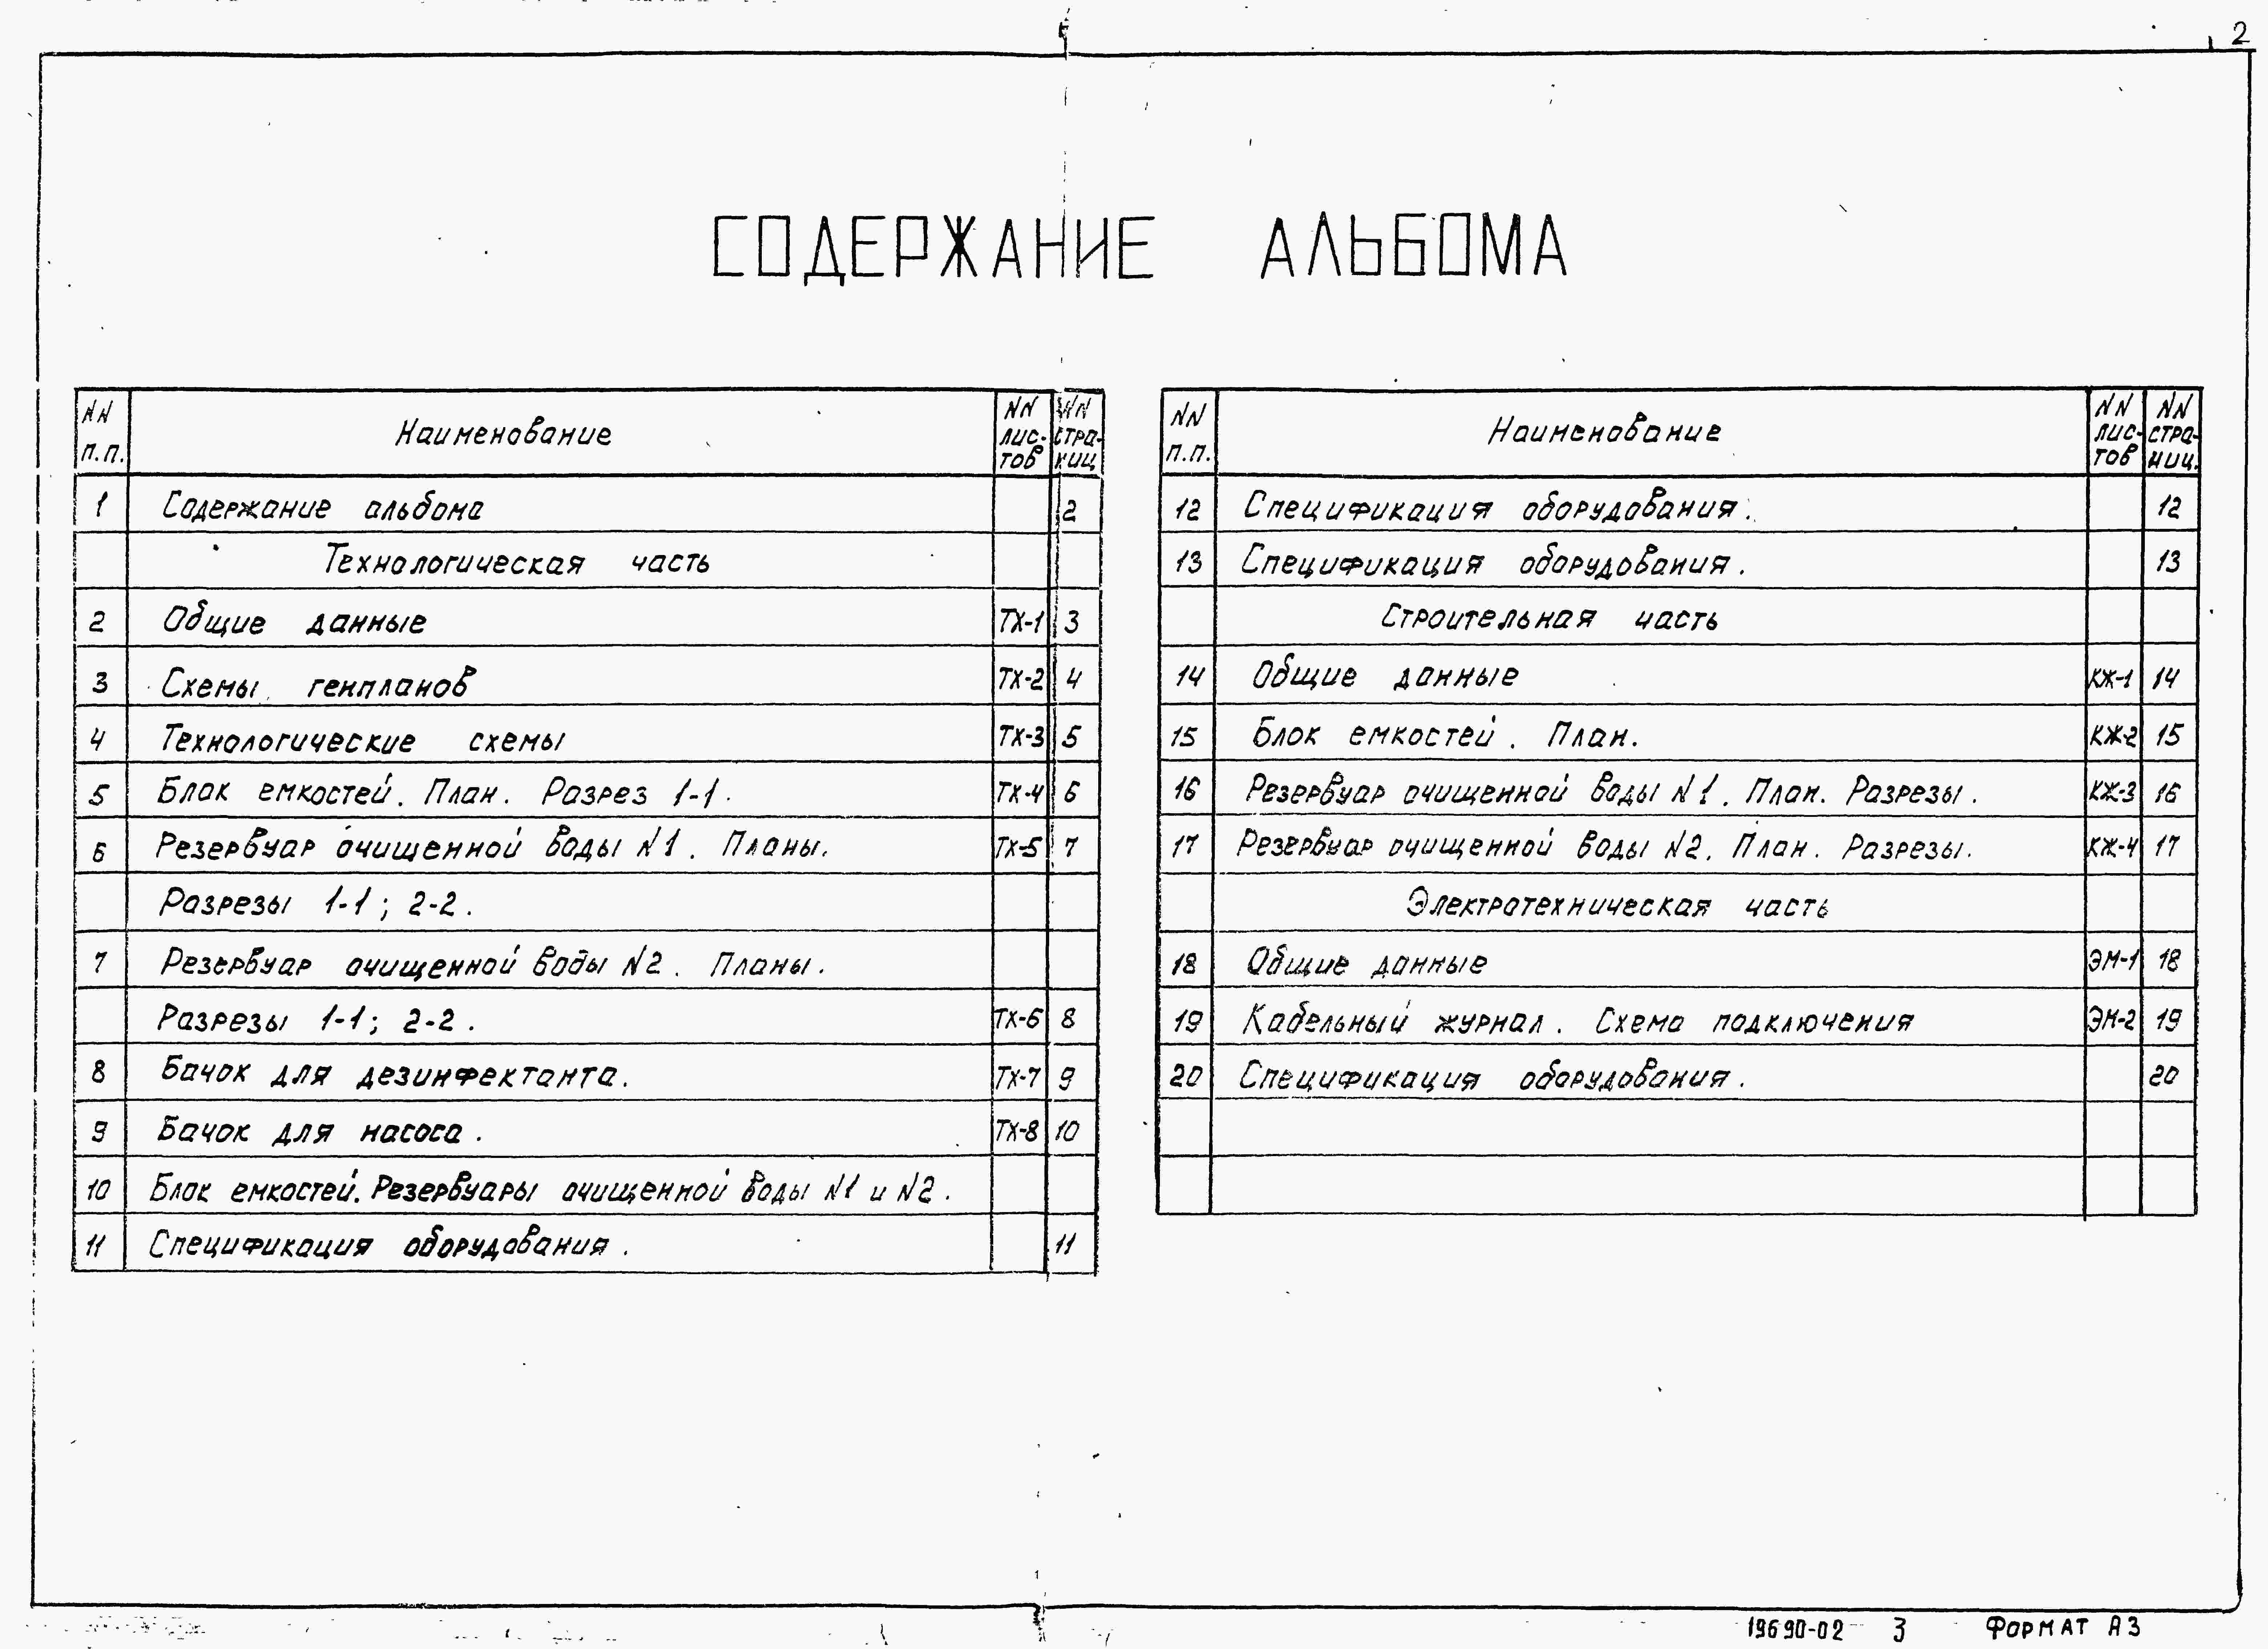 2
СОДЕРЖАНИЕ АЛЬБОМА
NN п.п. Наименование NN лис-тов NN стра-ниц
1 Содержание альбома 2
Технологическая часть
2 Общие данные ТХ-1 3
3 Схемы генпланов ТХ-2 4
4 Технологические схемы ТХ-3 5
5 Блок емкостей. План. Разрез 1-1. ТХ-4 6
6 Резервуар очищенной воды N1. Планы. ТХ-5 7
Разрезы 1-1; 2-2.
7 Резервуар очищенной воды N2. Планы.
Разрезы 1-1; 2-2. ТХ-6 8
8 Бачок для дезинфектанта. ТХ-7 9
9 Бачок для насоса. ТХ-8 10
10 Блок емкостей. Резервуары очищенной воды N1 и N2.
11 Спецификация оборудования. 11
NN п.п. Наименование NN лис-тов NN стра-ниц.
12 Спецификация оборудования. 12
13 Спецификация оборудования. 13
Строительная часть
14 Общие данные КЖ-1 14
15 Блок емкостей. План. КЖ-2 15
16 Резервуар очищенной воды N1. План. Разрезы. КЖ-3 16
17 Резервуар очищенной воды N2. План. Разрезы. КЖ-4 17
Электротехническая часть
18 Общие данные ЭМ-1 18
19 Кабельный журнал. Схема подключения ЭМ-2 19
20 Спецификация оборудования. 20
19690-02 3 ФОРМАТ А3